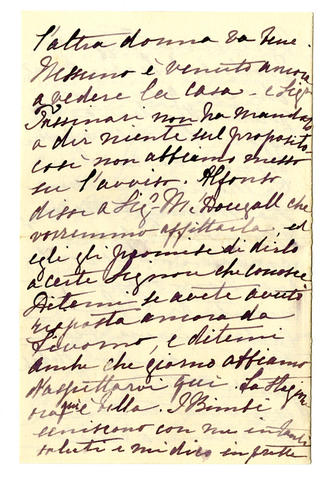 l'altra donna va bene.
Nessuno è venuto ancora
a vedere la casa - e Sigr
Passinari non ha mandato
a dir niente sul proposito
così non abbiamo messo
su l'avviso. Alfonso
disse a Sigr McDougall che
vorremmo affittarla, ed
egli gli promise di dirlo
a certe Signore che conosce
Ditemi se avete avuto
risposta ancora da
Livorno, e ditemi
anche che giorno abbiamo
d'aspettarvi qui. La stagione
qui è bella. I Bimbi
uniscono con me in tanti
saluti e mi dico in fretta